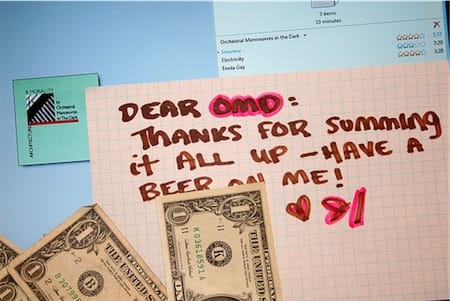 3 items
10 minutes
Orchestral Manoeuvres in the Dark
Souvenir 3:31
Electricity 3:29
Enola Gay 3:28
ARCHITECTURE & MORALITY
by
Orchestral
Manoeuvres
in The Dark
DEAR OMD:
THANKS FOR SUMMING
it ALL UP - HAVE A
BEER ON ME!
1
K03618591A
THE UNITED
1
B
THE UNITED